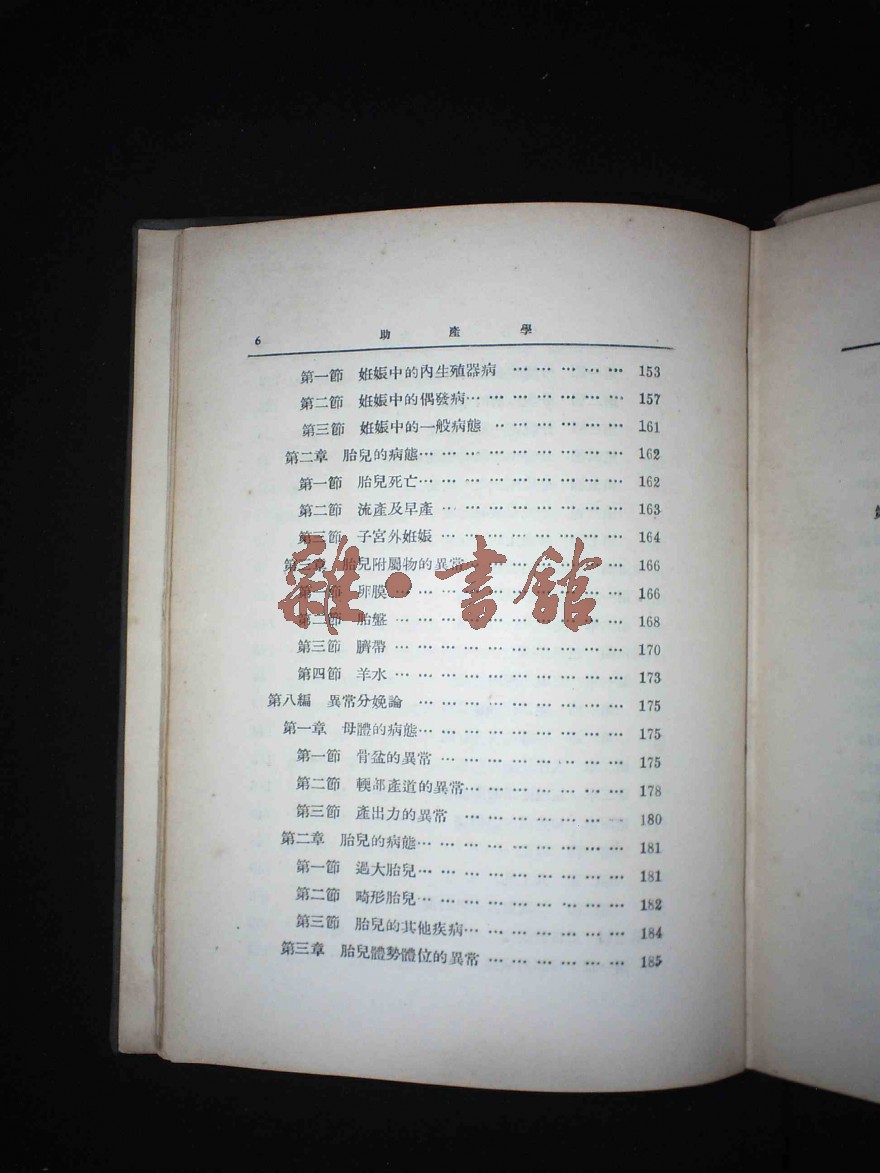 6 助產學
第一節 姙娠中的內生殖器病 … … … … … 153
第二節 姙娠中的偶發病… … … … … … 157
第三節 姙娠中的一般病態 … … … … … … 161
第二章 胎兒的病態… … … … … … … … 162
第一節 胎兒死亡… … … … … … … … 162
第二節 流產及早產 … … … … … … … 163
第三節 子宮外姙娠 … … … … … … … 164
第三章 胎兒附屬物的異常 … … … … … … 166
第一節 卵膜 … … … … … … … … … 166
第二節 胎盤 … … … … … … … … … 168
第三節 臍帶 … … … … … … … … … 170
第四節 羊水 … … … … … … … … … 173
第八編 異常分娩論 … … … … … … … … 175
第一章 母體的病態… … … … … … … … 175
第一節 骨盆的異常 … … … … … … … 175
第二節 輭部產道的異常… … … … … … 178
第三節 產出力的異常 … … … … … … 180
第二章 胎兒的病態… … … … … … … … 181
第一節 過大胎兒… … … … … … … … 181
第二節 畸形胎兒… … … … … … … … 182
第三節 胎兒的其他疾病… … … … … … 184
第三章 胎兒體勢體位的異常 … … … … … … 185
雜·書館